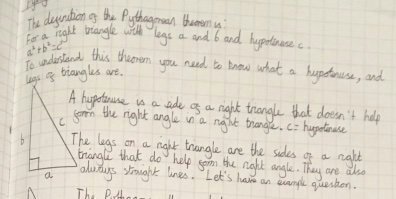 The definition of the Pythagorean theorem is:
For a right triangle with legs a and b and hypotenuse c.
a²+b²=c²
To understand this theorem you need to know what a hypotenuse, and
legs of triangles are.
A hypotenuse is a side of a right triangle that doesn't help
form the right angle in a right triangle. c = hypotenuse
c
b
The legs on a right triangle are the sides of a right
triangle that do help form the right angle. They are also
always straight lines. Let's have an example question.
a
The